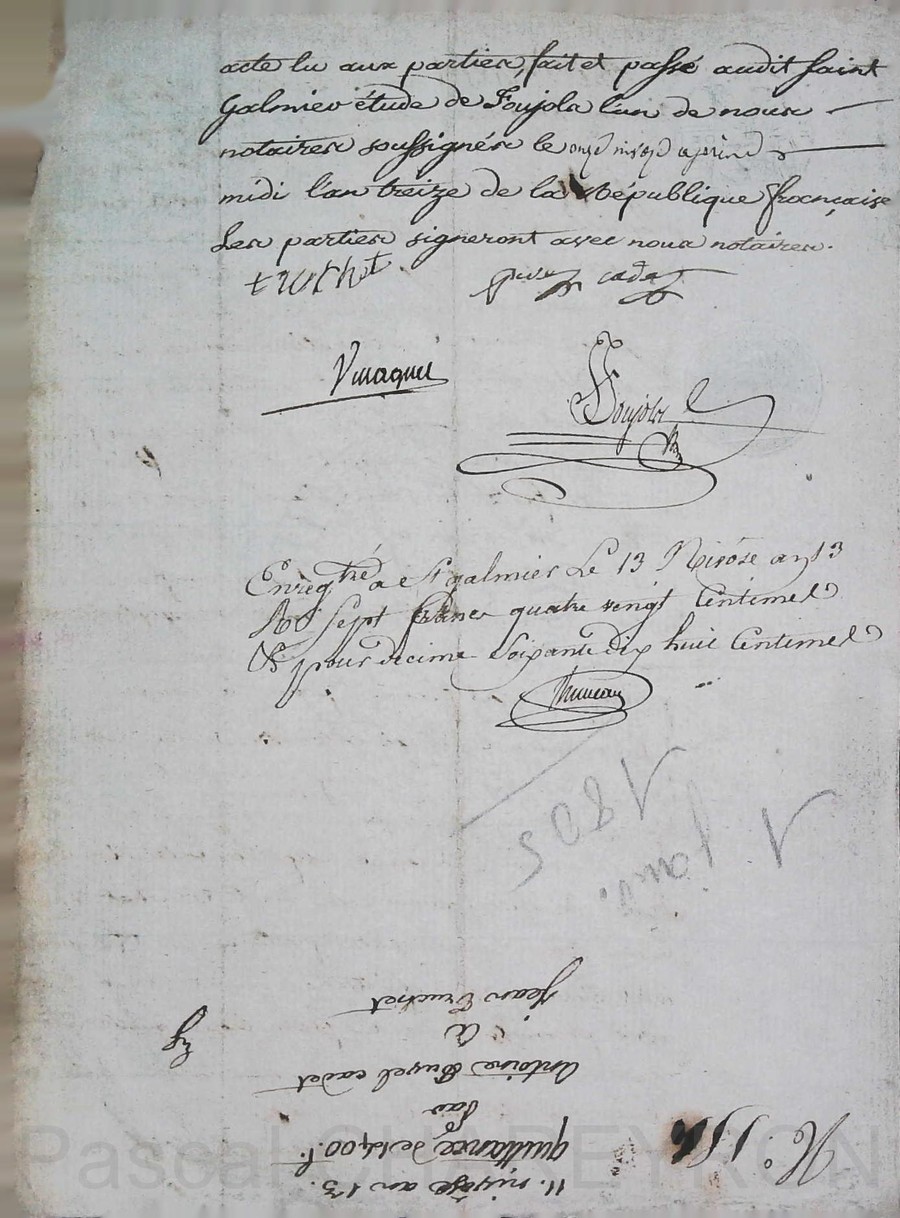 acte lu aux parties, fait et passé audit saint
Galmier étude de Foujols l'un de nous
notaires soussignés le onze nivose après
midi l'an treize de la République française
Les parties signeront avec nous notaires.
truchet cadet
Foujols
Enregtré a St galmier Le 13 Nivôse an 13
Rç sept francs quatre vingt Centimes
& pour decime Soixante dix huit Centimes
1 janv. 1805
11. nivôse an 13.
quittance de 1400 f.
par
Antoine cadet
à
Jean Truchet
N.°
Pascal CHAPEYRON